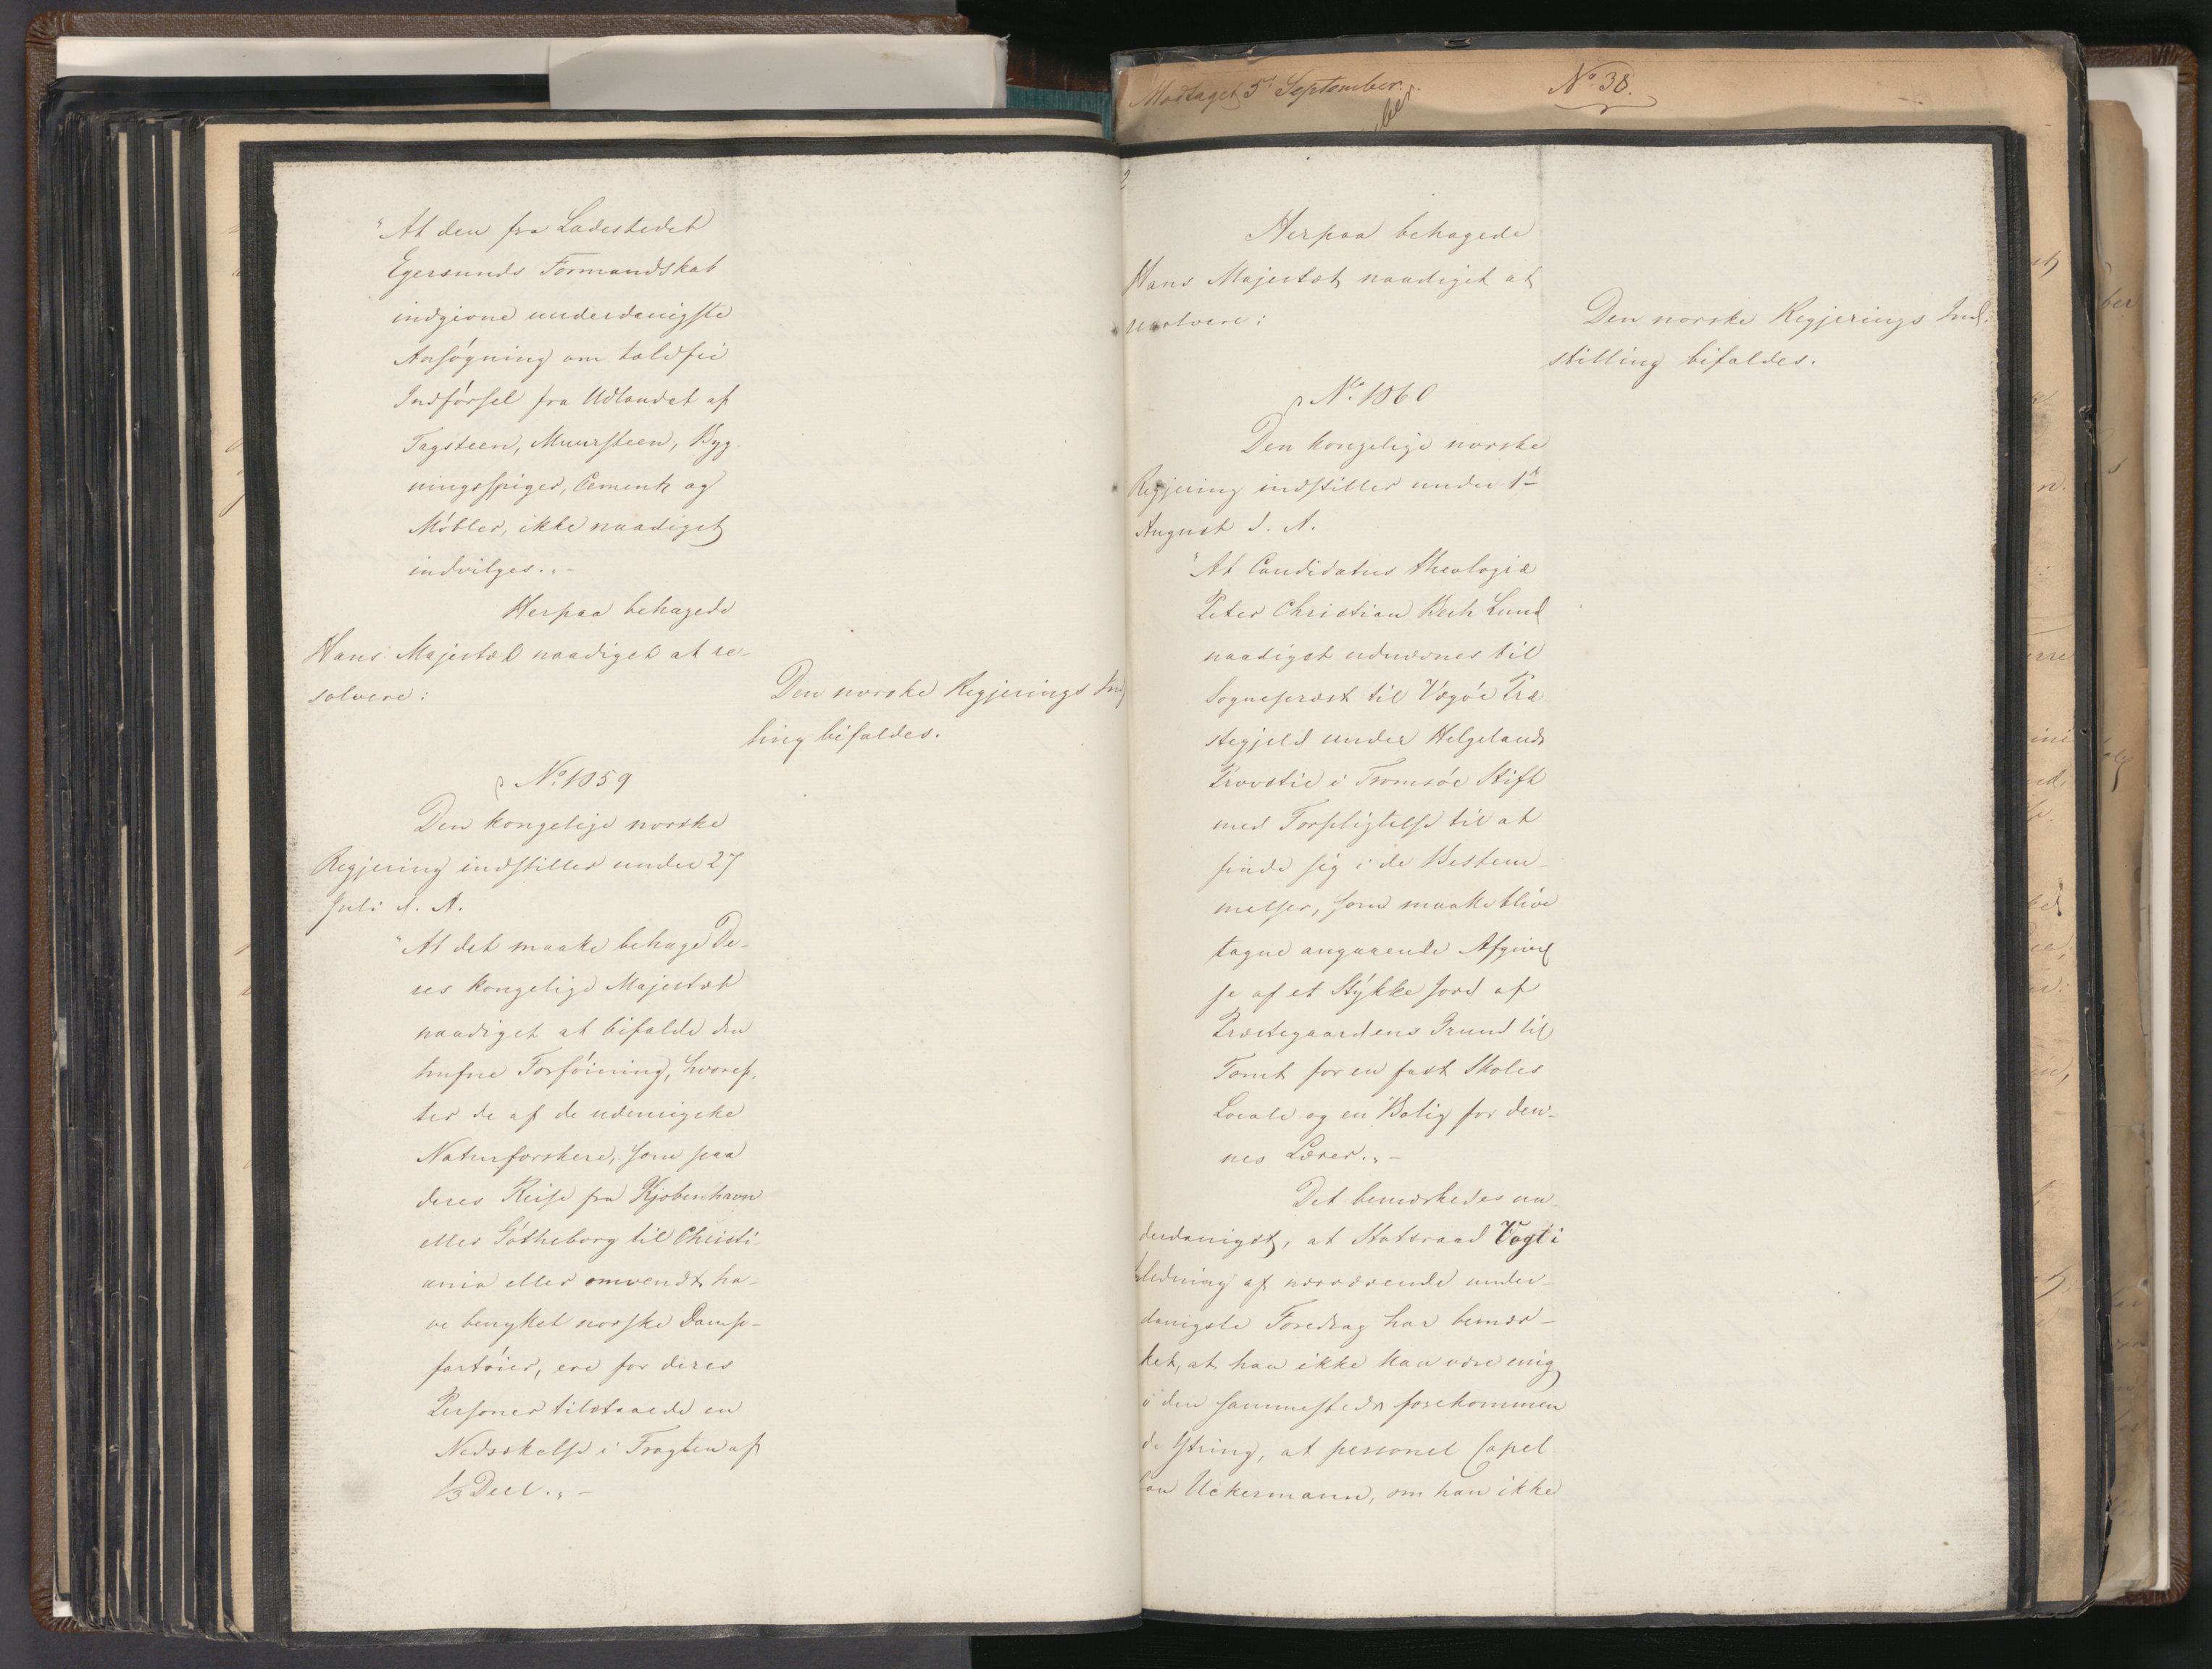 "At den fra Ladestedet
Egersunds Formandskab
indgivne underdanigste
Ansøgning om toldfri
Indførsel fra Udlandet af
Tagsteen, Muursteen, Byg-
ningsspiger, Cement og
Møbler, ikke naadigst
indvilges."-
Herpaa behagede
Hans Majestæt naadigst at re-
solvere:
Den norske Regjerings Ind
ling bifaldes.
No. 1859
Den kongelige norske
Regjering indstiller under 27
Juli d. A.
"At det maatte behage De-
res kongelige Majestæt
naadigst at bifalde den
trufne Forføining, hvoref-
ter de af de udenrigske
Naturforskere, som paa
deres Reise fra Kjøbenhavn
eller Gøtheborg til Christi-
ania eller omvendt ha-
ve benyttet norske Damp-
fartøier, ere for deres
Personer tilstaaede en
Nedsættelse i Fragten af
1/3 Deel."-
Modtaget 5t September.
No. 38.
ber
2
Herpaa behagede
Hans Majestæt naadigst at
resolvere:
Den norske Regjerings Ind-
stilling bifaldes.
No. 1860
Den kongelige norske
Regjering indstiller under 1ste
August d. A.
"At Candidatus theologiæ
Peter Christian Bech Lund
naadigst udnævnes til
Sognepræst til Vegøe Præ
stegjeld under Helgelands
Provstie i Tromsøe Stift
med Forpligtelse til at
finde sig i de Bestem-
melser, som maatte blive
tagne angaaende Afgivel
se af et Stykke Jord af
Præstegaardens Grund til
Tomt for en fast Skoles
Locale og en Bolig for den-
nes Lærer."-
Det bemærkedes un-
derdanigst, at Statsraad Vogt i
ledning af nærværende under-
danigste Foredrag har bemær-
ket, at han ikke kan være enig
i den sammesteds forekommen
de Ytring, at personel Capel-
lan Uckermann, om han ikke